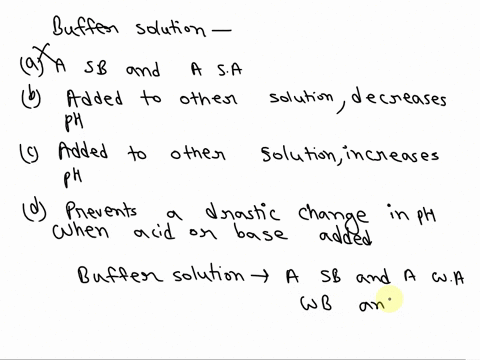 Buffer solution —
(a) A SB and A S.A
(b) Added to other solution, decreases
pH
(c) Added to other solution, increases
pH
(d) Prevents a drastic change in pH
when acid or base added
Buffer solution → A SB and A W.A
WB an